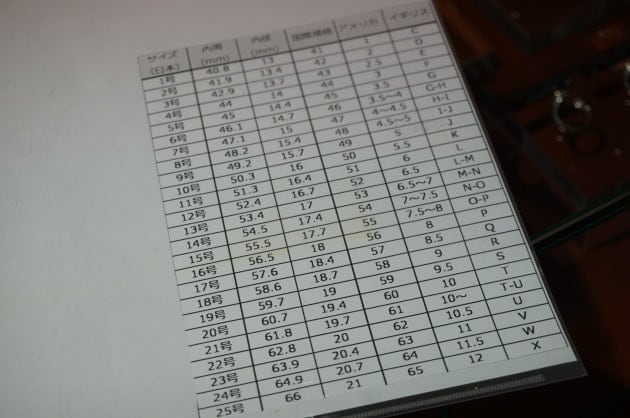 サイズ(日本) 内周(mm) 内径(mm) 国際規格 アメリカ イギリス
1号 40.8 13 41 1 C
2号 41.9 13.4 42 2 D
3号 42.9 13.7 43 2.5 E
4号 44 14 44 3 F
5号 45 14.4 45 3.5 G
6号 46.1 14.7 46 3.5～4 G-H
7号 47.1 15 47 4～4.5 H-I
8号 48.2 15.4 48 4.5～5 I-J
9号 49.2 15.7 49 5 J
10号 50.3 16 50 5.5 K
11号 51.3 16.4 51 6 L
12号 52.4 16.7 52 6.5 L-M
13号 53.4 17 53 6.5～7 M-N
14号 54.5 17.4 54 7～7.5 N-O
15号 55.5 17.7 55 7.5～8 O-P
16号 56.5 18 56 8 P
17号 57.6 18.4 57 8.5 Q
18号 58.6 18.7 58 9 R
19号 59.7 19 59 9.5 S
20号 60.7 19.4 60 10 T
21号 61.8 19.7 61 10～ T-U
22号 62.8 20 62 10.5 U
23号 63.9 20.4 63 11 V
24号 64.9 20.7 64 11.5 W
25号 66 21 65 12 X